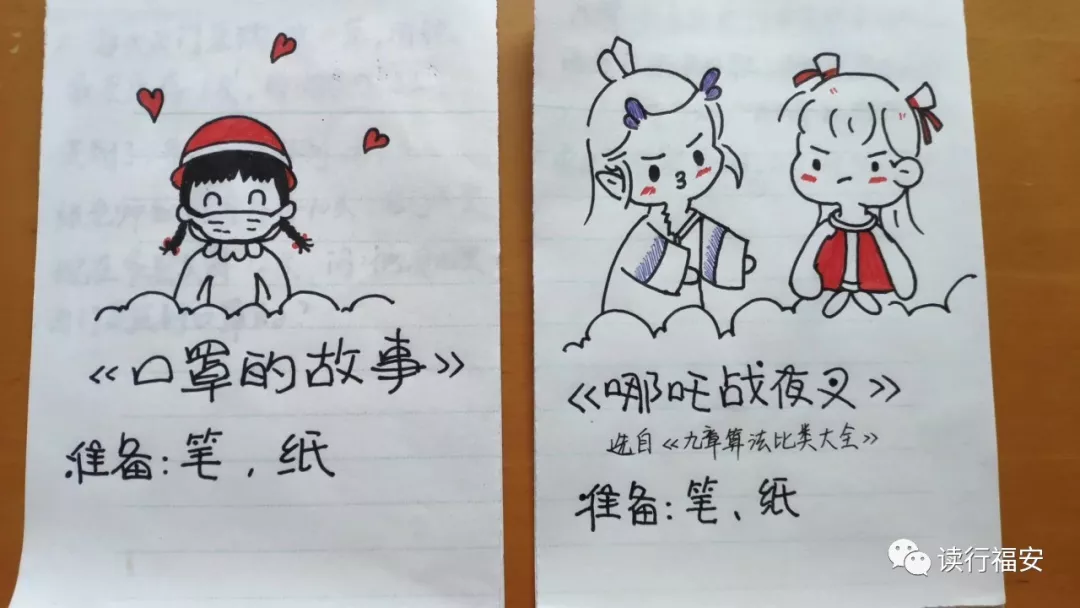 《口罩的故事》
准备:笔,纸
《哪吒战夜叉》
选自《九章算法比类大全》
准备:笔、纸
读行福安